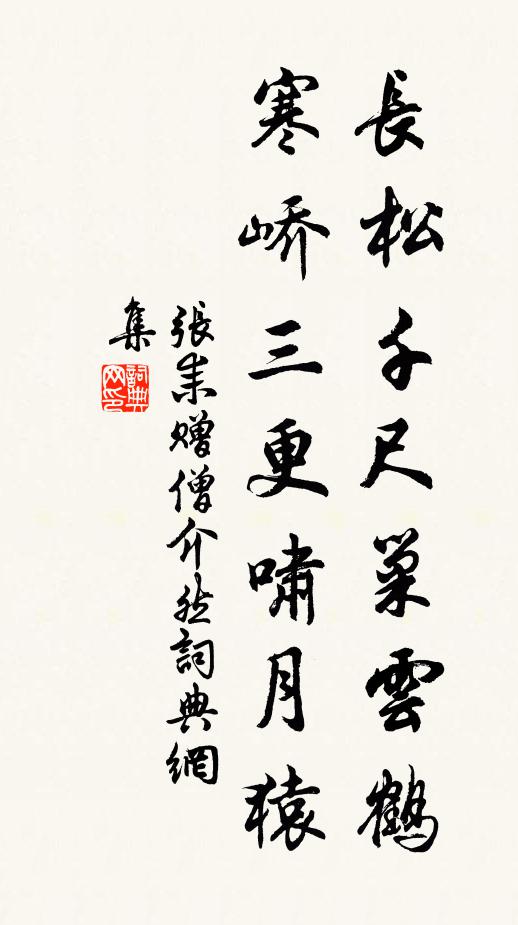 長松千尺巢雲鶴
寒嶠三更嘯月猿
張耒贈僧介然詞典網
集
詞典
网印